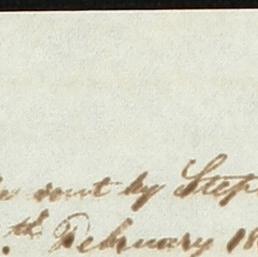 sent by Step
th February 18